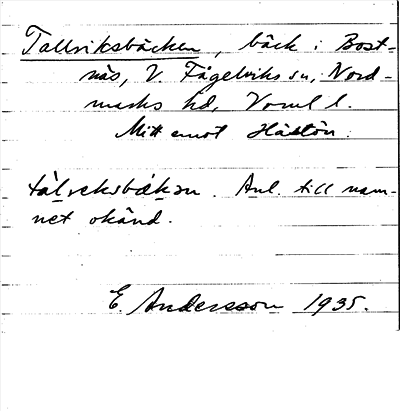 Tallriksbäcken, bäck i Bost-
näs, V. Fågelviks sn, Nord-
marks hd, Vrml l.
Mitt emot Hästön.
tàlreksbækən. Anl. till nam-
net okänd.
E. Andersson 1935.